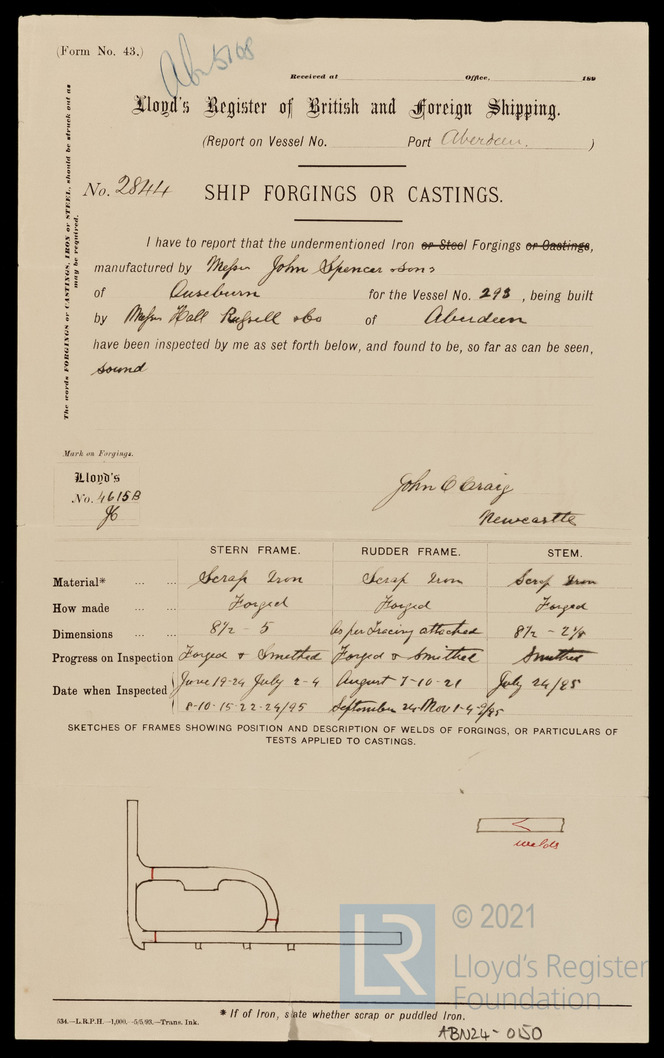 (Form No. 43.)
Abn 5108
Received at Office, 189
Lloyd's Register of British and Foreign Shipping.
(Report on Vessel No. Port Aberdeen. )
The words FORGINGS or CASTINGS, IRON or STEEL, should be struck out as
may be required.
No. 2844 SHIP FORGINGS OR CASTINGS.
I have to report that the undermentioned Iron or Steel Forgings or Castings,
manufactured by Messrs John Spencer & Sons
of Ouseburn for the Vessel No. 293, being built
by Messrs Hall Russell & Co of Aberdeen
have been inspected by me as set forth below, and found to be, so far as can be seen,
sound
Mark on Forgings.
Lloyd's
No. 4615B
JC
John C Craig
Newcastle
STERN FRAME. RUDDER FRAME. STEM.
Material* ... ... Scrap Iron Scrap Iron Scrap Iron
How made ... ... Forged Forged Forged
Dimensions ... ... 8½ - 5 as per Tracing attached 8½ - 2⅛
Progress on Inspection Forged & Smithed Forged & Smithed Smithed
Date when Inspected June 19-24 July 2-4 August 7-10-21 July 24/95
8-10-15-22-24/95 September 24 Nov 1-4-9/95
SKETCHES OF FRAMES SHOWING POSITION AND DESCRIPTION OF WELDS OF FORGINGS, OR PARTICULARS OF
TESTS APPLIED TO CASTINGS.
welds
LR
© 2021
Lloyd's Register
Foundation
* If of Iron, state whether scrap or puddled Iron.
534.—L.R.P.H.—1,000. -5/5/93.—Trans. Ink.
ABN24-0150